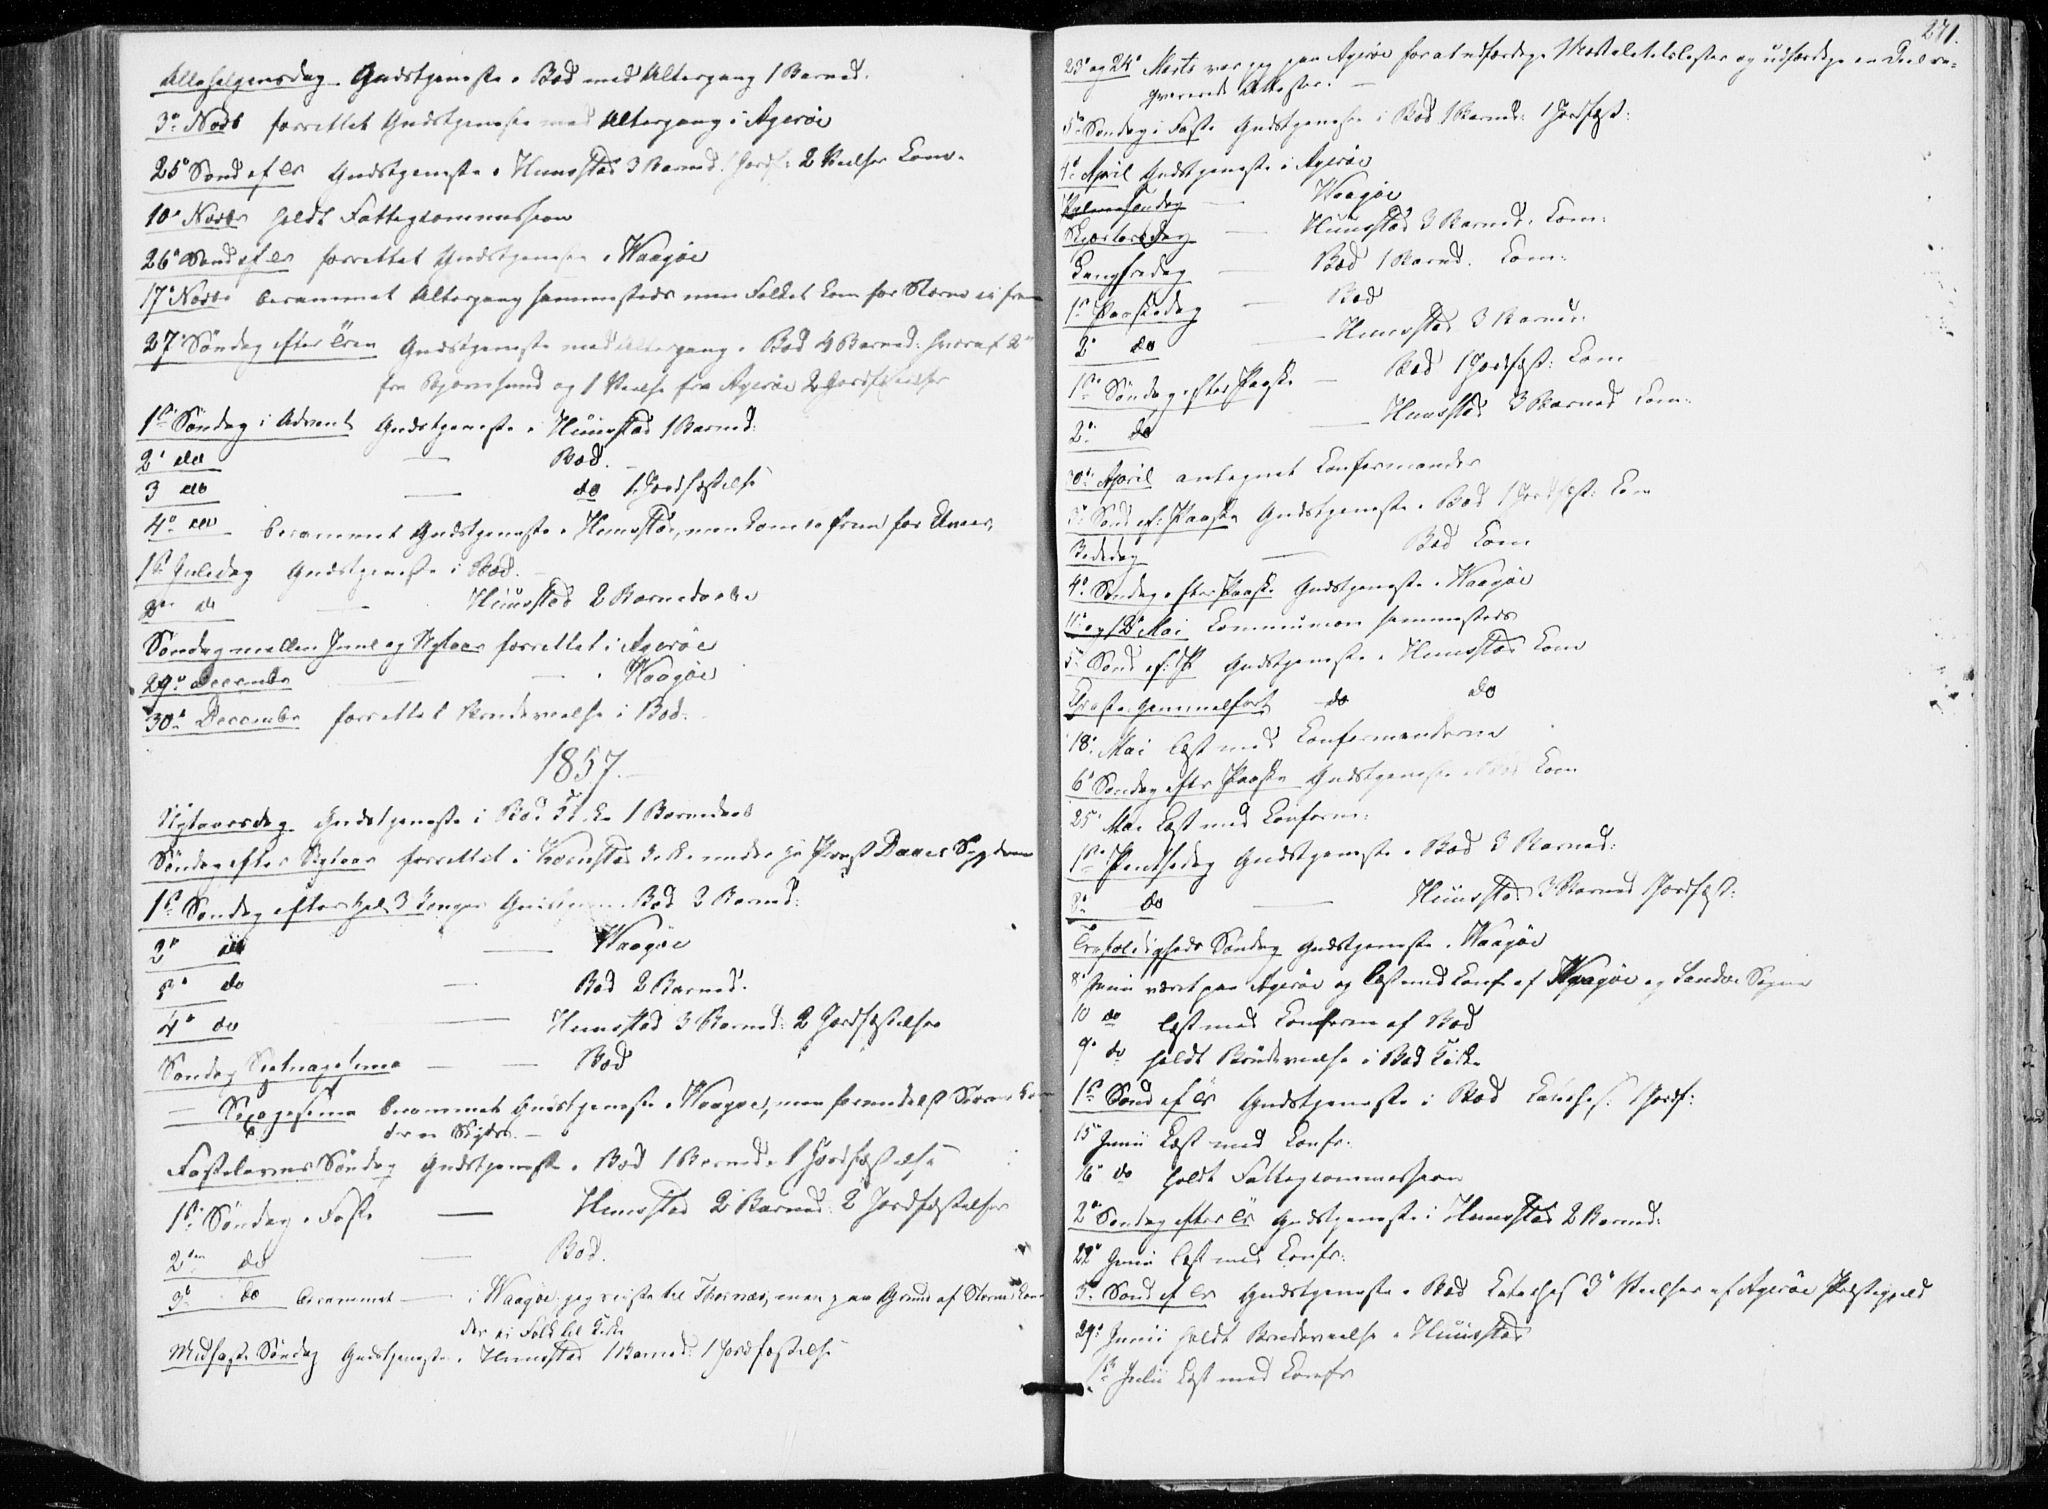 Allehelgensdag Gudstjeneste i Bod med Altergang 1 Barned.
3die Novb forrettet Gudstjeneste med Altergang i Agerøe
25de Sønd ef Tr Gudstjeneste i Huustad 3 Barned. 1 Jordf: 2 Vielser Com.
10de Novbr holdt Fattigcommission
26de Sønd ef Tr forrettet Gudstjeneste i Waagøe
17de Novbr berammet Altergang sammesteds men Folket kom for Storm ei frem
27de Søndag efter Tren Gudstjeneste med Altergang i Bod 4 Barned: hvoraf 2
fra Bjørnsund og 1 Vielse fra Agerøe 2 Jordfæstelser
1ste Søndag i Advent Gudstjeneste i Huustad 1 Barned:
2den do — Bod.
3 do — do 1 Jordfæstelse
4de do berammet Gudstjeneste i Huustad, men kom ei frem for Uveir,
1ste Juledag Gudstjeneste i Bod.
2den do — Huustad 2 Barnedaabe
Søndag mellem Juul og Nytaar forrettet i Agerøe
29de Decembr — Waagøe
30de Decembr forrettet Brudevielse i Bod.
1857.
Nytaarsdag Gudstjeneste i Bod Kirke 1 Barnedaab
Søndag efter Nytaar forrettet i Huustad under Provst Daaes Sygdom
1ste Søndag efter Hel. 3 Konger Gudstjen Bod 3 Barned:
2den do — Waagøe
3die do — Bod 2 Barned:
4de do — Huustad 3 Barned: 2 Jordfæstelser
Søndag Septuagesima — Bod
— Sexagesima berammet Gudstjeneste i Waagøe, men formedelst Storm kom
der ei Skyds. —
Fastelavns Søndag Gudstjeneste i Bod 1 Barned. 1 Jordfæstelse
1ste Søndag i Faste — Huustad 2 Barned: 2 Jordfæstelser
2den do — Bod.
3de do berammet — i Waagøe, jeg reiste til Thornæs, men paa Grund af Storm kom
der ei Folk til Kirke
Midfaste Søndag Gudstjeneste i Huustad 1 Barned: 1 Jordfæstelse
271.
23de og 24de Marts var jeg paa Agerøe for at udfærdige og udfærdige en Deel re-
qvirerede Attester. —
5te Søndag i Faste Gudstjeneste i Bod 1 Barned: 1 Jordfæst:
4de April Gudstjeneste i Agerøe
Palmesøndag — Waagøe
Skjærtorsdag — Huustad 3 Barned. Com:
Langfredag — Bod 1 Barned. Com:
1ste Paaskedag — Bod
2den do — Huustad 3 Barned:
1ste Søndag efter Paaske — Bod 1 Jordfæst: Com
2den do — Huustad 3 Barned Com.
30te April antegnet Confirmander
3die Sønd ef: Paaske Gudstjeneste i Bod 1 Jordfæst: Com
Bededag — Bod Com
4de Søndag efter Paaske Gudstjeneste i Waagøe
11te og 12te Mai Communion sammesteds
5te Sønd ef: P Gudstjeneste i Huustad Com
Christi Himmelfart do do
18de Mai læst med Confirmanderne
6te Søndag efter Paaske Gudstjeneste i Bod Com
25de Mai læst med Confirm:
1ste Pintsedag Gudstjeneste i Bod 3 Barned:
2den do — Huustad 3 Barned 1 Jordfæst:
Trefoldigheds Søndag Gudstjeneste i Waagøe
8de Junii været paa Agerøe og læst med Conf af Waagøe og Sandøe Sogne
10 do læst med Confirm af Bod
9de do holdt Brudevielse i Bod Kirke
1ste Sønd ef Tr Gudstjeneste i Bod Catechis: 1 Jordf:
15de Junii læst med Confr.
16de do holdt Fattigcommission
2den Søndag efter Tr Gudstjeneste i Huustad 2 Barned:
22de Junii læst med Confr.
3die Sønd ef Tr Gudstjeneste i Bod Cateches 3 Vielser af Agerøe Præstegjeld
29de Junii holdt Brudevielse i Huustad
1ste Julii læst med Confr